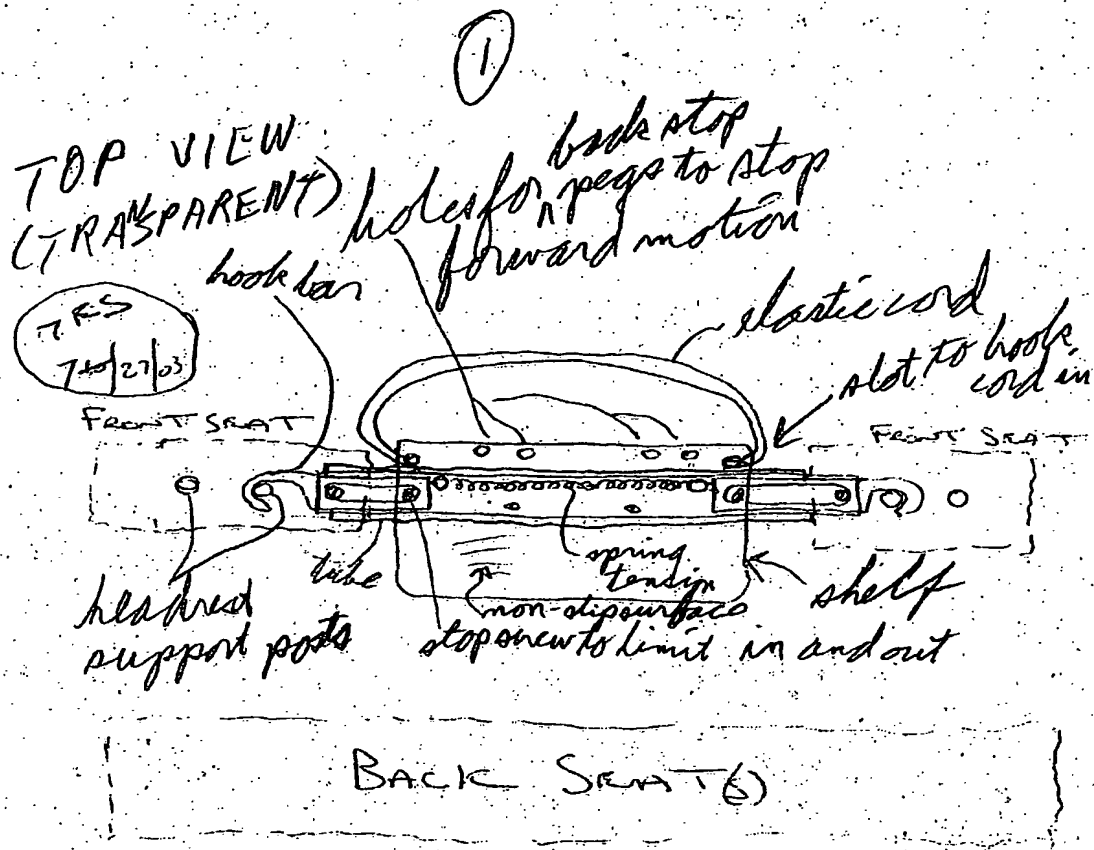 1
TOP VIEW
(TRANSPARENT)
holes for back stop
pegs to stop
forward motion
hook bar
elastic cord
slot to hook
cord in
7/27/03
FRONT SEAT
FRONT SEAT
tube
spring
tension
non-slip surface
shelf
headrest
support posts
stop screw to limit in and out
BACK SEAT(S)